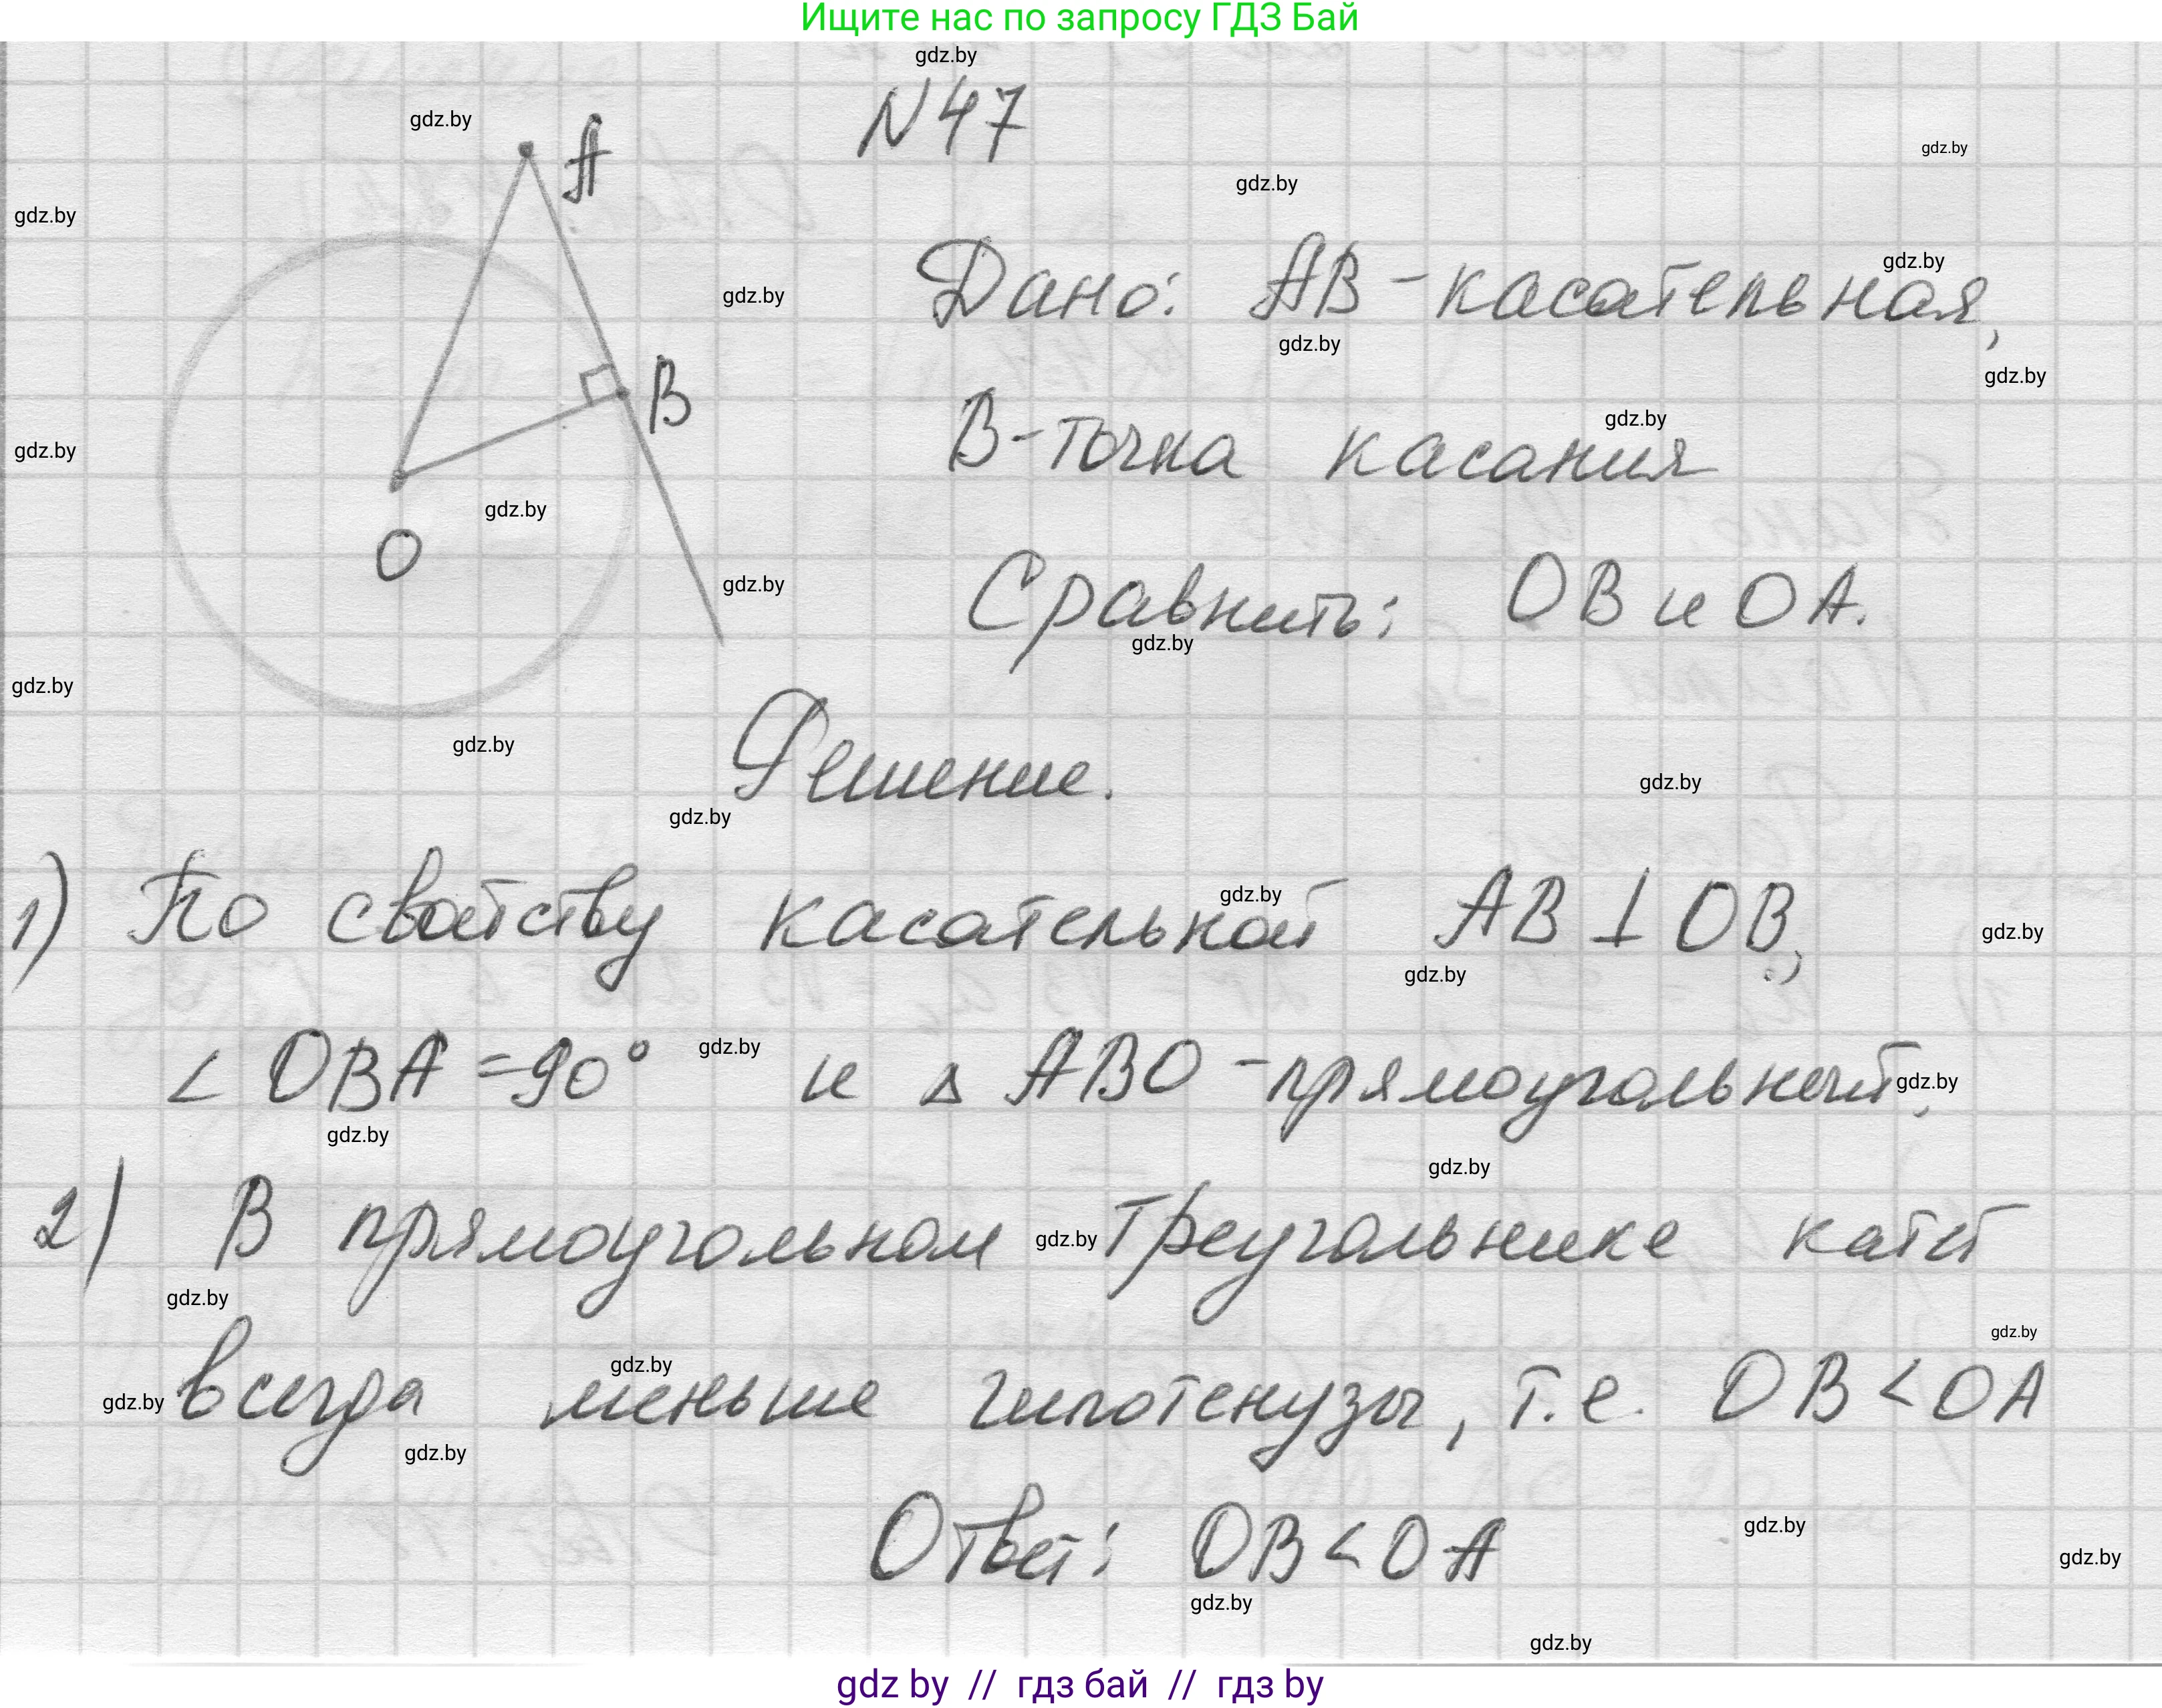 Ищите нас по запросу ГДЗ Бай
gdz.by
N47
gdz.by
A
gdz.by
gdz.by
gdz.by
Дано: AB - касательная,
gdz.by
gdz.by
gdz.by
gdz.by
B
B - точка касания
gdz.by
gdz.by
gdz.by
O
Сравнить: OB и OA.
gdz.by
gdz.by
gdz.by
gdz.by
Решение.
gdz.by
gdz.by
1) По свойству касательной AB ⊥ OB,
gdz.by
gdz.by
gdz.by
∠ OBA = 90° и △ ABO - прямоугольный.
gdz.by
gdz.by
gdz.by
gdz.by
2) В прямоугольном треугольнике катет
gdz.by
gdz.by
gdz.by
всегда меньше гипотенузы, т.е. OB < OA
gdz.by
gdz.by
gdz.by
Ответ: OB < OA
gdz.by
gdz.by
gdz.by
gdz.by
gdz by // гдз бай // гдз by